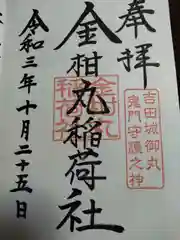 奉拝
吉田城御丸
鬼門守護之神
金柑丸稲荷社
令和三年十月二十五日